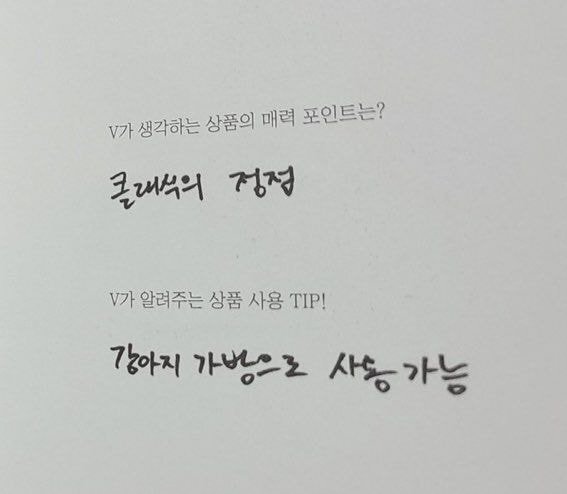 V가 생각하는 상품의 매력 포인트는?
클래식의 정점
V가 알려주는 상품 사용 TIP!
강아지 가방으로 사용 가능